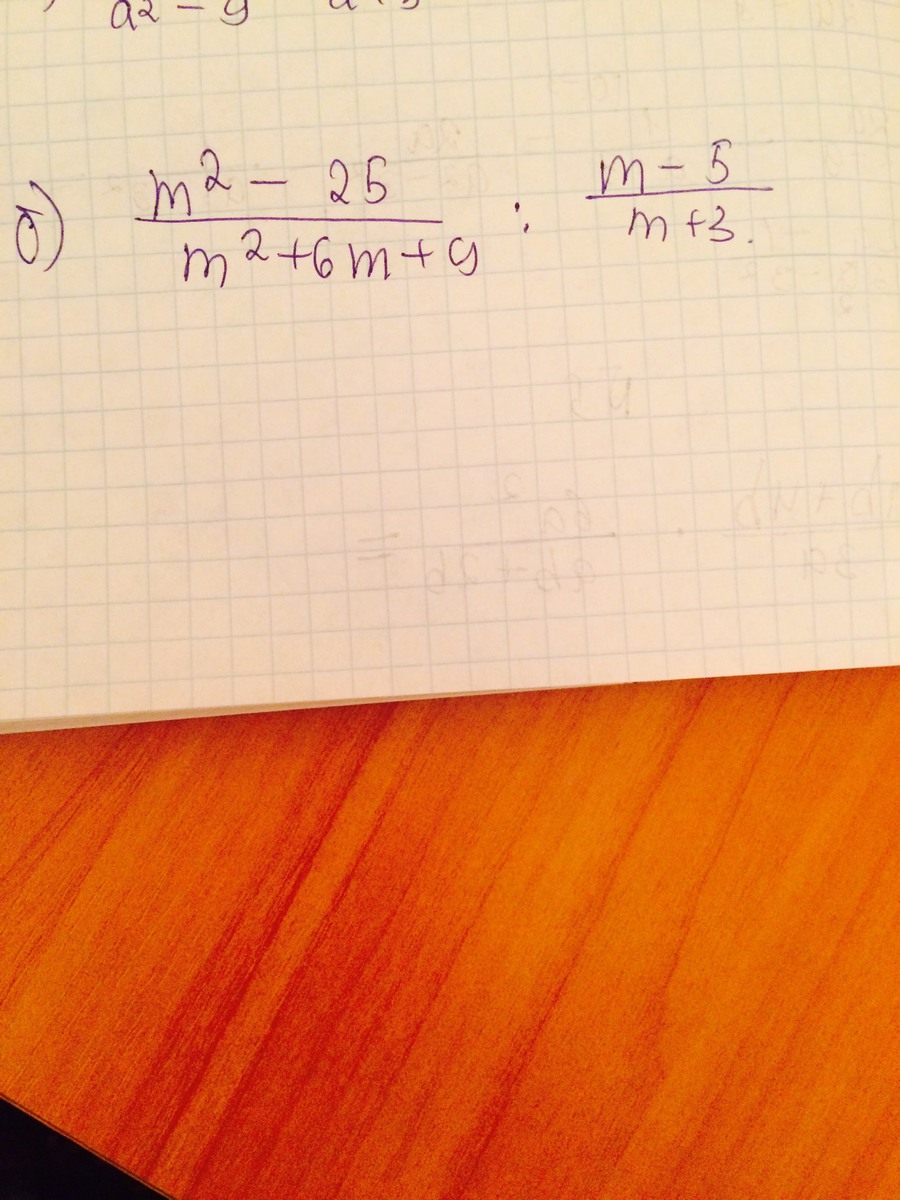 б) \frac{m^2 - 25}{m^2+6m+9} : \frac{m-5}{m+3}.